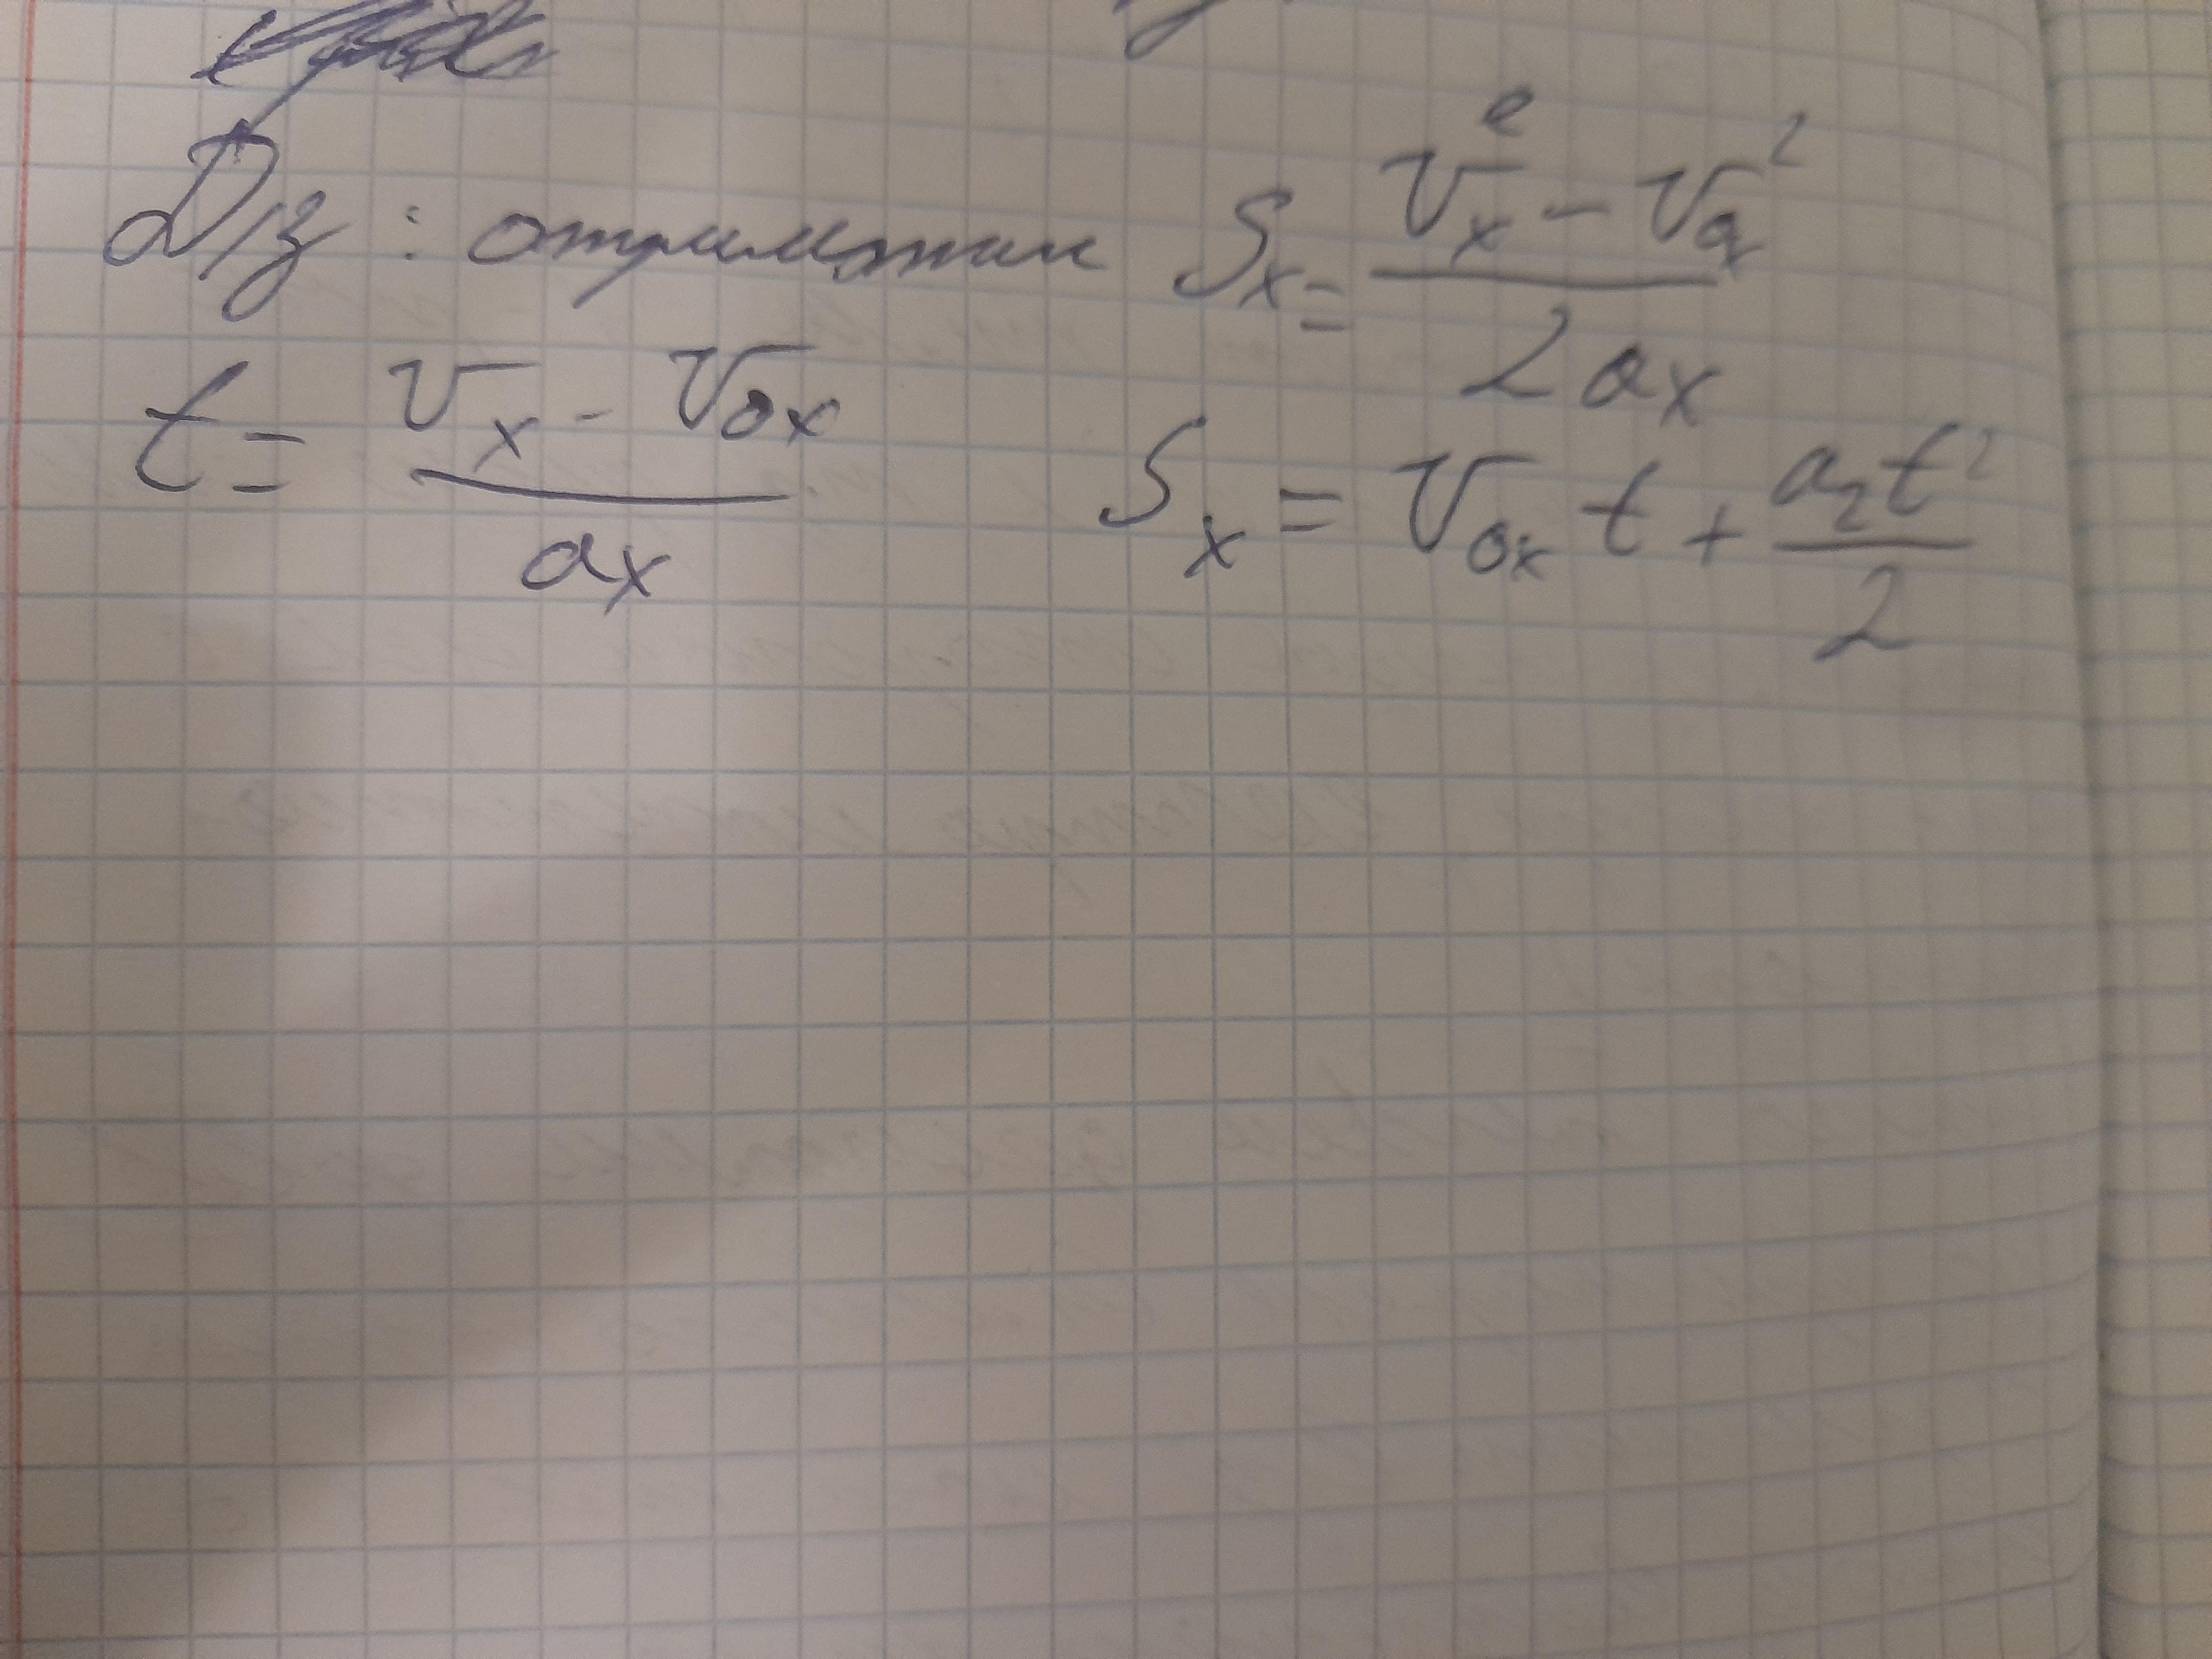 Д/з: отримати Sx = (vx² - v0²) / 2ax
t = (vx - v0x) / ax
Sx = v0x t + a2t² / 2